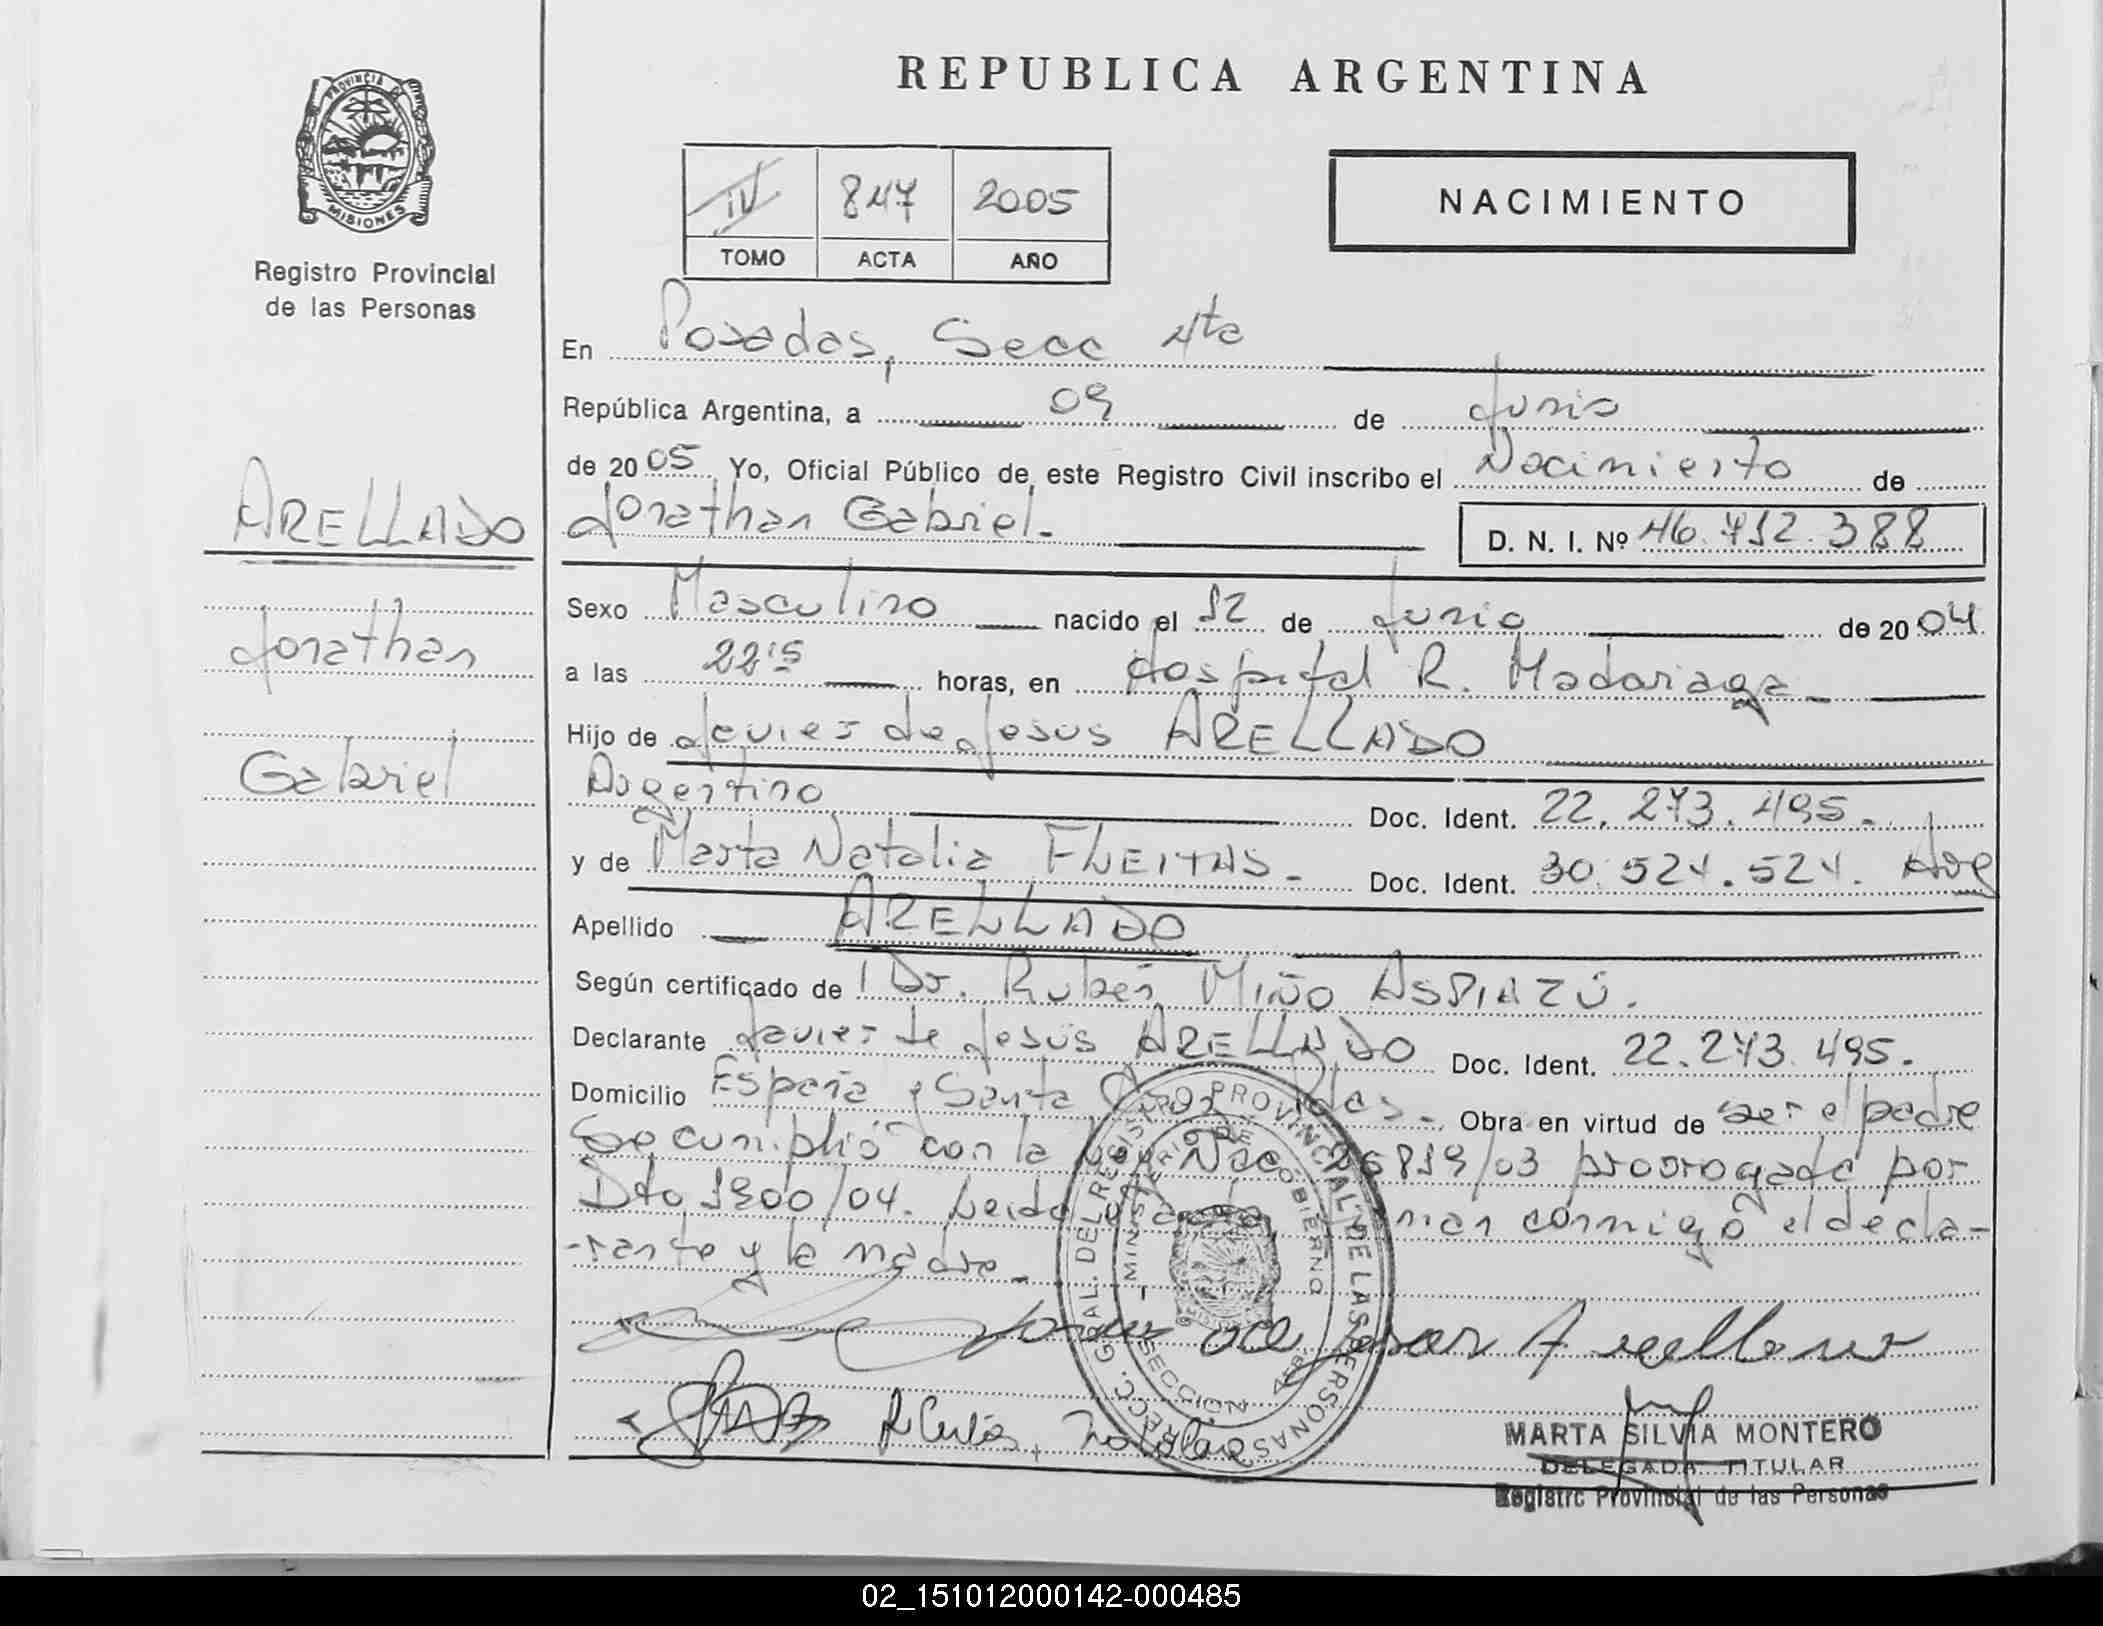 PROVINCIA DE
MISIONES
Registro Provincial
de las Personas
ARELLADO
Jonathan
Gabriel
REPUBLICA ARGENTINA
IV 847 2005
TOMO ACTA AÑO
NACIMIENTO
En Posadas, Secc 4ta
República Argentina, a 09 de Junio
de 2005 Yo, Oficial Público de este Registro Civil inscribo el Nacimiento de
Jonathan Gabriel.-
D. N. I. Nº 46.712.388
Sexo Masculino nacido el 12 de Junio de 2004
a las 22:15 horas, en Hospital R. Madariaga-
Hijo de Javier de Jesus ARELLADO
Argentino Doc. Ident. 22.273.495.-
y de Marta Natalia FLEITAS.- Doc. Ident. 30.524.524. Arg
Apellido ARELLADO
Según certificado de Dr. Rubén MIÑO ASPIAZÚ.
Declarante Javier de Jesús ARELLADO Doc. Ident. 22.273.495.
Domicilio España y Santa Pdas.- Obra en virtud de ser el padre
Se cumplió con la Ley Nac 25819/03 prorrogada por
Dto 1900/04. Leida el acta firman conmigo el decla-
-rante y la madre.-
DIRECC. GRAL. DEL REGISTRO PROVINCIAL DE LAS PERSONAS
MINISTERIO DE GOBIERNO
SECCION 4ta.
MARTA SILVIA MONTERO
DELEGADA TITULAR
Registro Provincial de las Personas
02_151012000142-000485